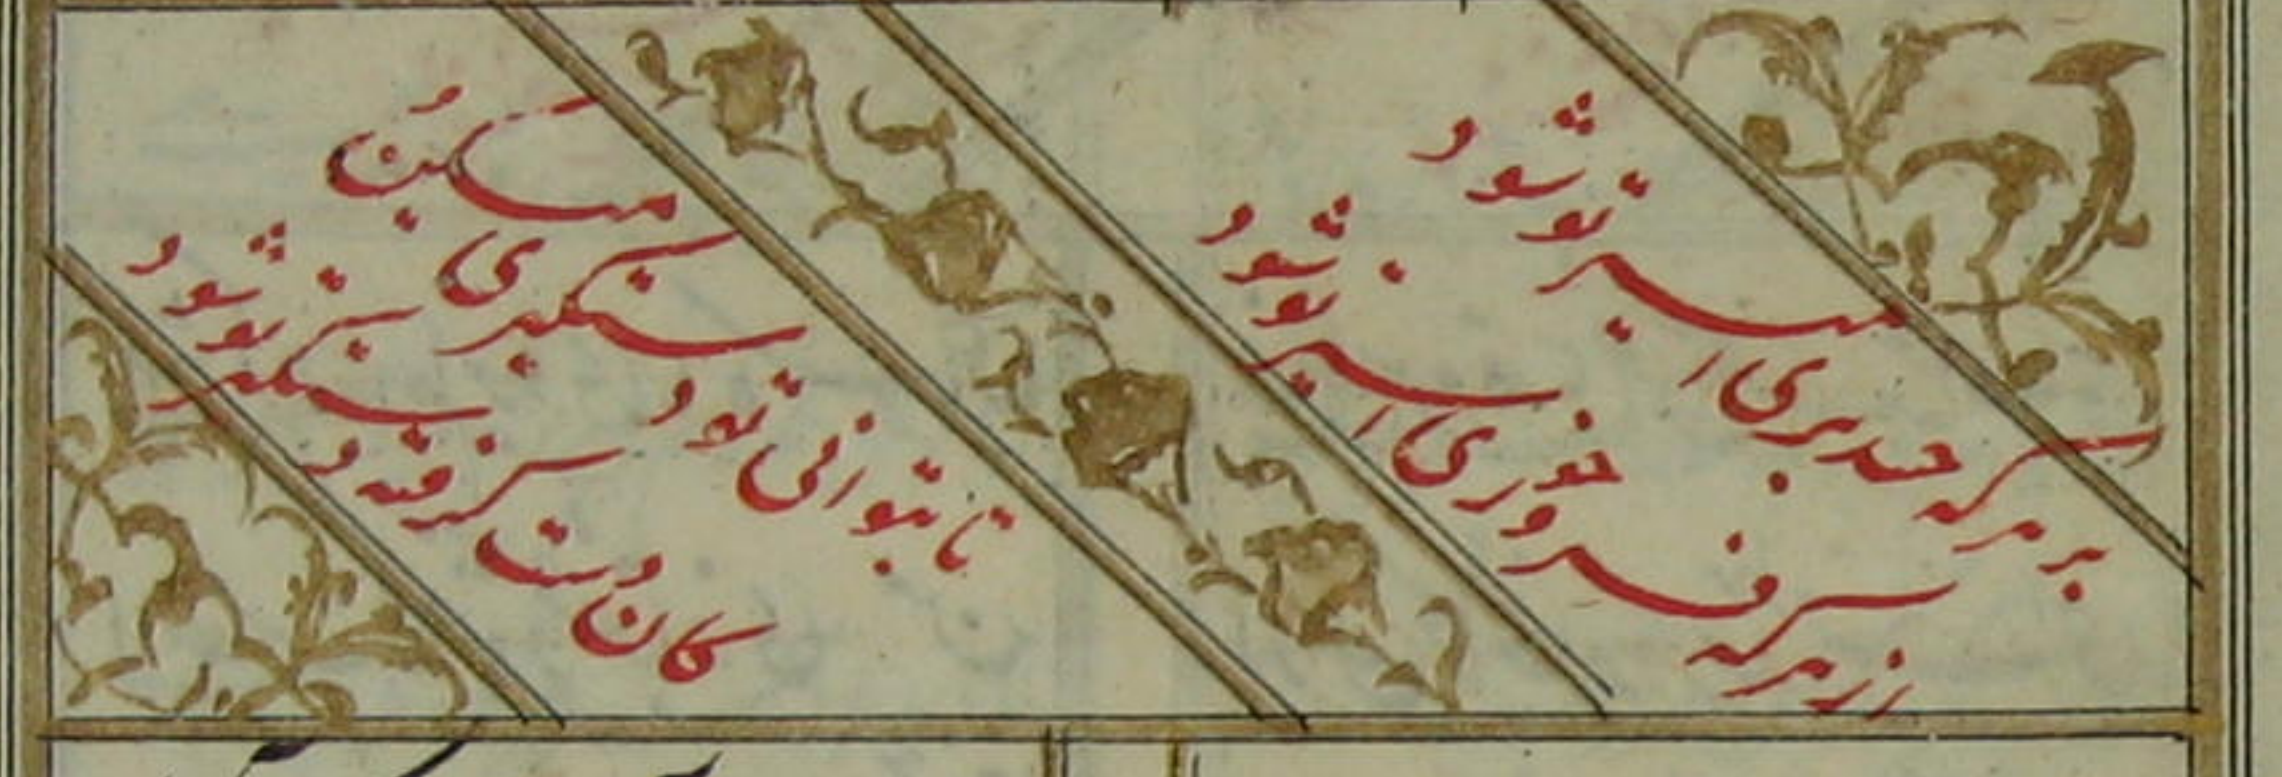 بر هر که حسد بری امیر تو شود
از هر که فرو خوری اسیر تو شود
تا بتوانی تو دستکیری میکن
کان دست کرفته دستکیر تو شود